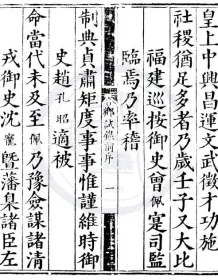 皇上中興昌運文武徵才功施
社稷猶足多者乃歲壬子又大比
福建巡按御史曾佩寔司監
臨焉乃率稽
鄉試錄前序 一
制典貞肅矩度事事惟謹維時御
史趙孔昭適被
命當代未及至佩乃豫僉謀諸清
戎御史沈寵暨藩臬諸臣左